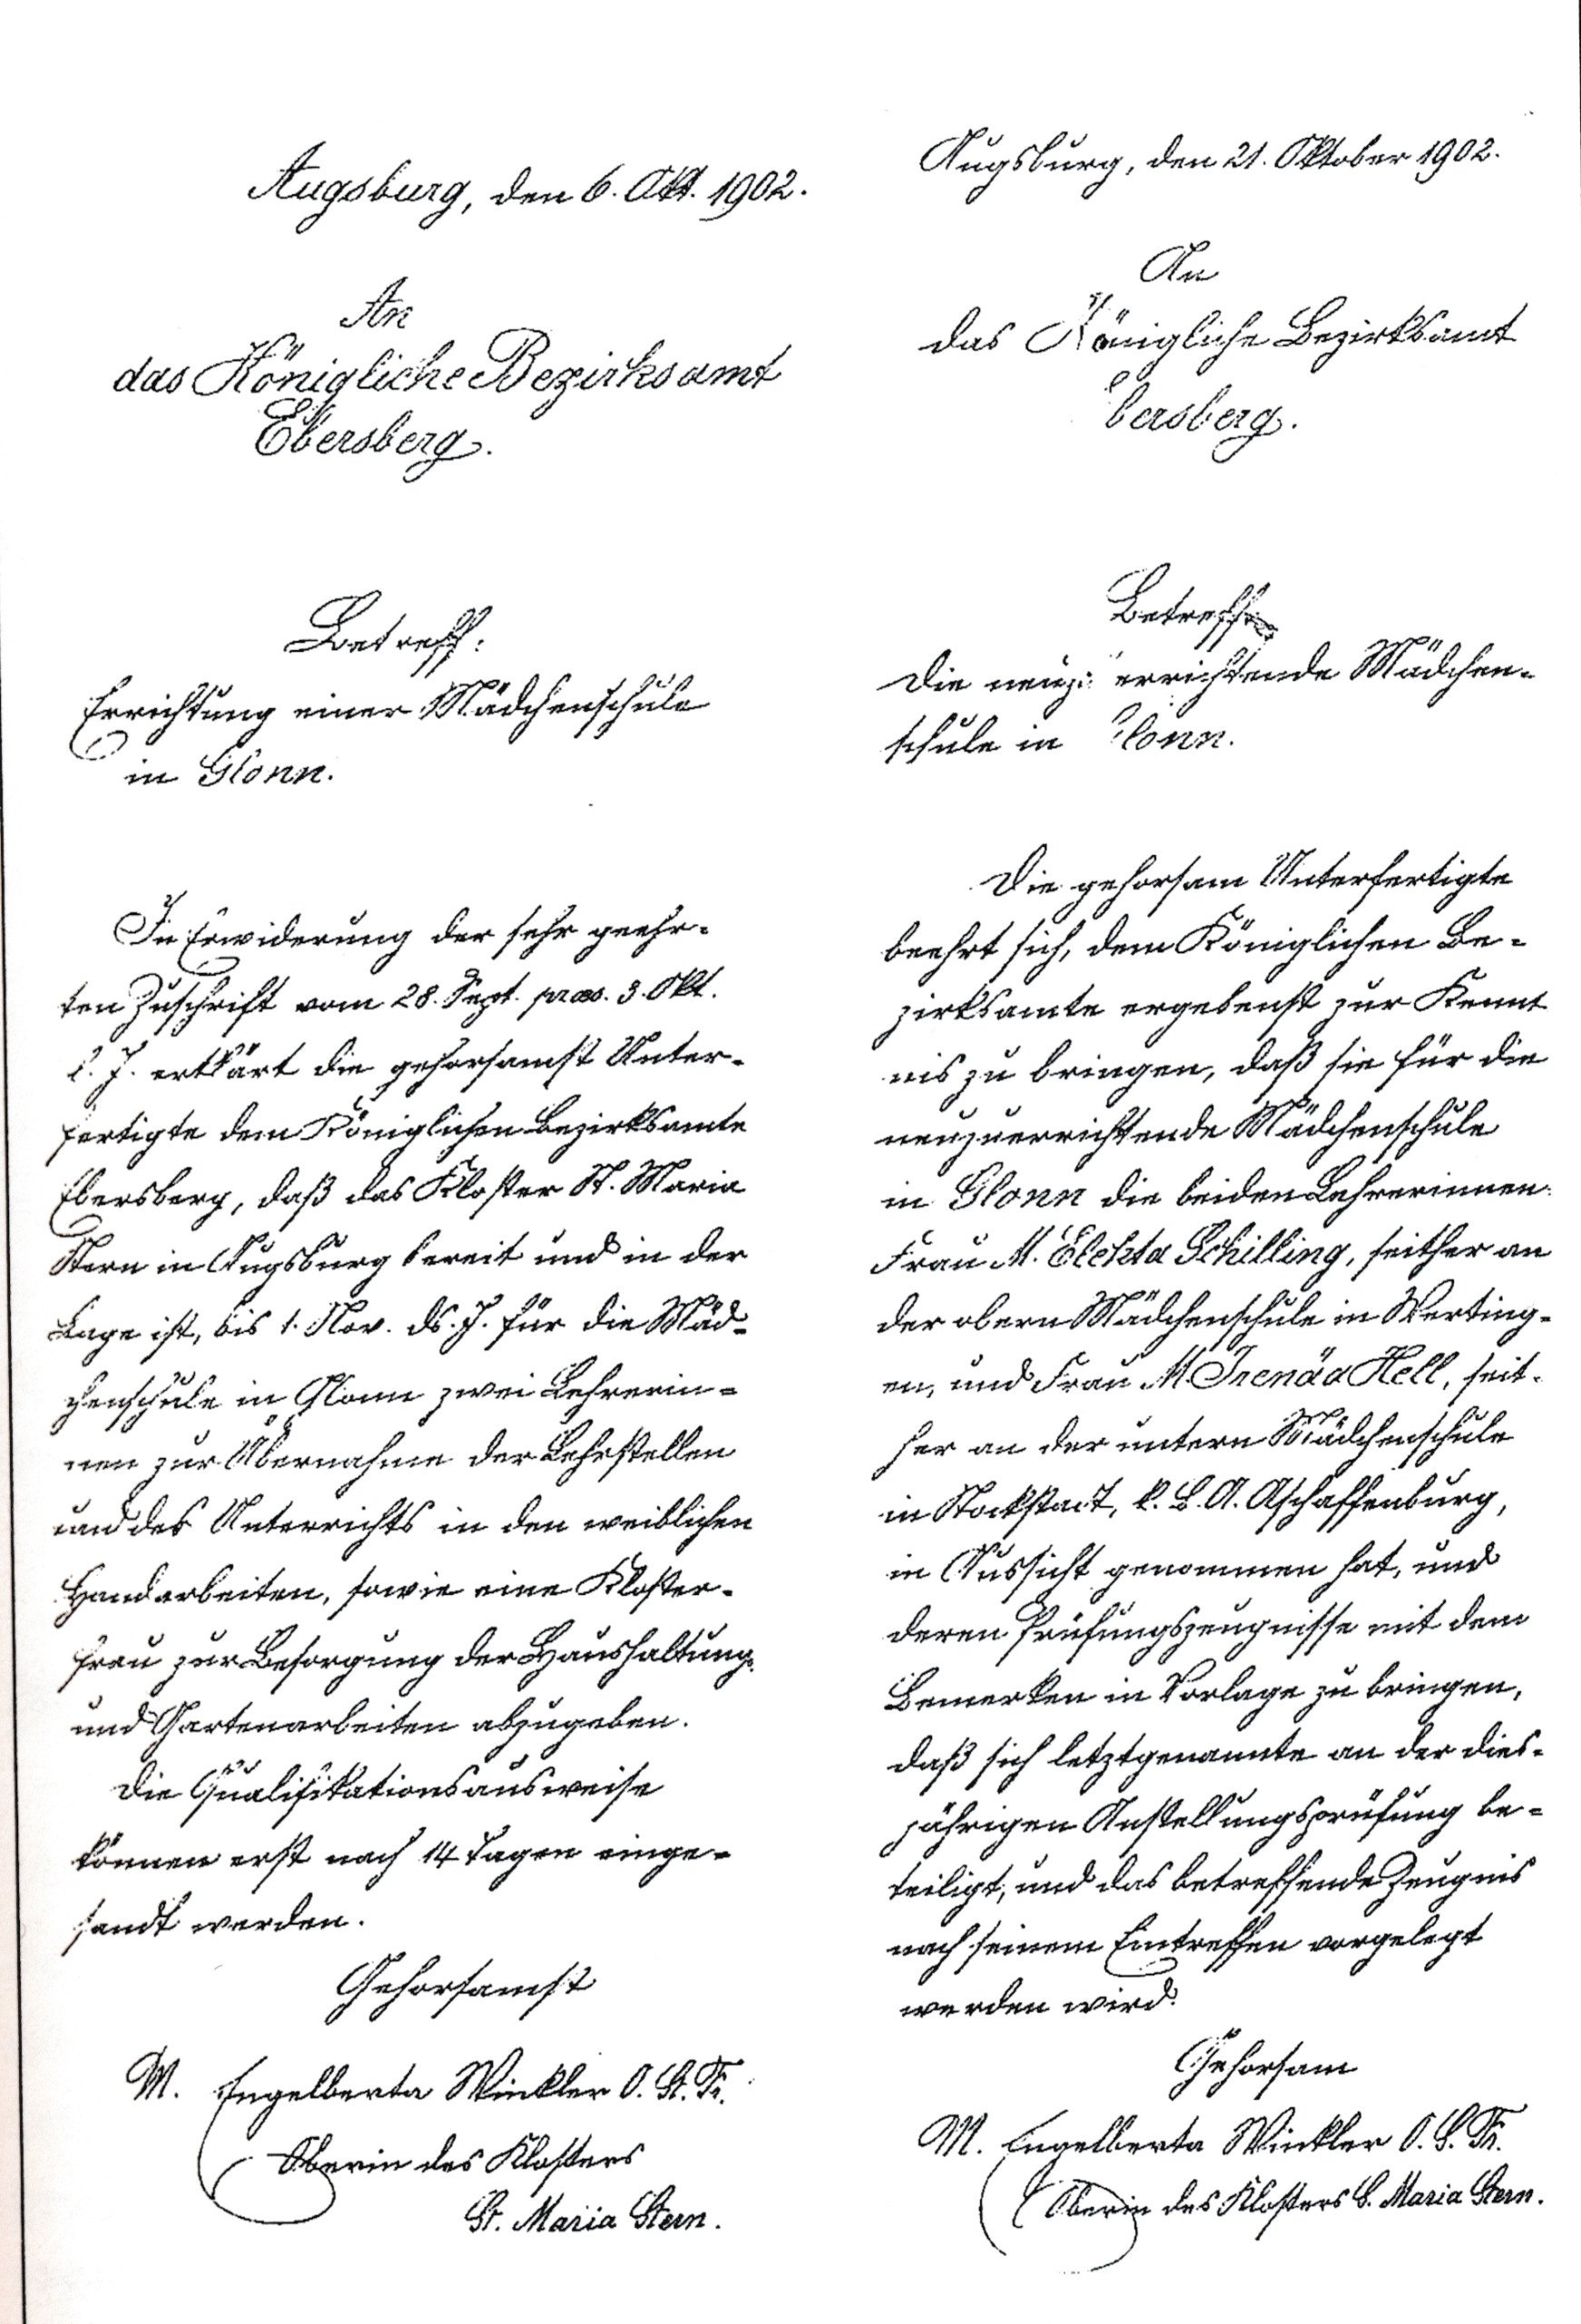 Augsburg, den 6. Okt. 1902.
An
das Königliche Bezirksamt
Ebersberg.
Betreff:
Errichtung einer Mädchenschule
in Glonn.
In Erwiderung der sehr geehr-
ten Zuschrift vom 28. Sept. praes. 3. Okt.
l. J. erklärt die gehorsamst Unter-
fertigte dem Königlichen Bezirksamte
Ebersberg, daß das Kloster St. Maria
Stern in Augsburg bereit und in der
Lage ist, bis 1. Nov. ds. J. für die Mäd-
chenschule in Glonn zwei Lehrerin-
nen zur Übernahme der Lehrstellen
und des Unterrichts in den weiblichen
Handarbeiten, sowie eine Kloster-
frau zur Besorgung der Haushaltungs-
und Gartenarbeiten abzugeben.
Die Qualifikationsausweise
können erst nach 14 Tagen einge-
sandt werden.
Gehorsamst
M. Engelberta Winkler O. St. Fr.
Oberin des Klosters
St. Maria Stern.
Augsburg, den 21. Oktober 1902.
An
das Königliche Bezirksamt
bersberg.
Betreff:
Die neuz: errichtende Mädchen-
schule in lonn.
Die gehorsam Unterfertigte
beehrt sich, dem Königlichen Be-
zirksamte ergebenst zur Kennt
nis zu bringen, daß sie für die
neuzuerrichtende Mädchenschule
in Glonn die beiden Lehrerinnen:
Frau M. Elekta Schilling, seither an
der obern Mädchenschule in Werting-
en, und Frau M. Irenäa Hell, seit-
her an der untern Mädchenschule
in Stockstadt, k. B. A. Aschaffenburg,
in Aussicht genommen hat, und
deren Prüfungszeugnisse mit dem
Bemerken in Vorlage zu bringen,
daß sich letztgenannte an der dies-
jährigen Anstellungsprüfung be-
teiligt, und das betreffende Zeugnis
nach seinem Eintreffen vorgelegt
werden wird.
Gehorsam
M. Engelberta Winkler O. S. Fr.
Oberin des Klosters S. Maria Stern.